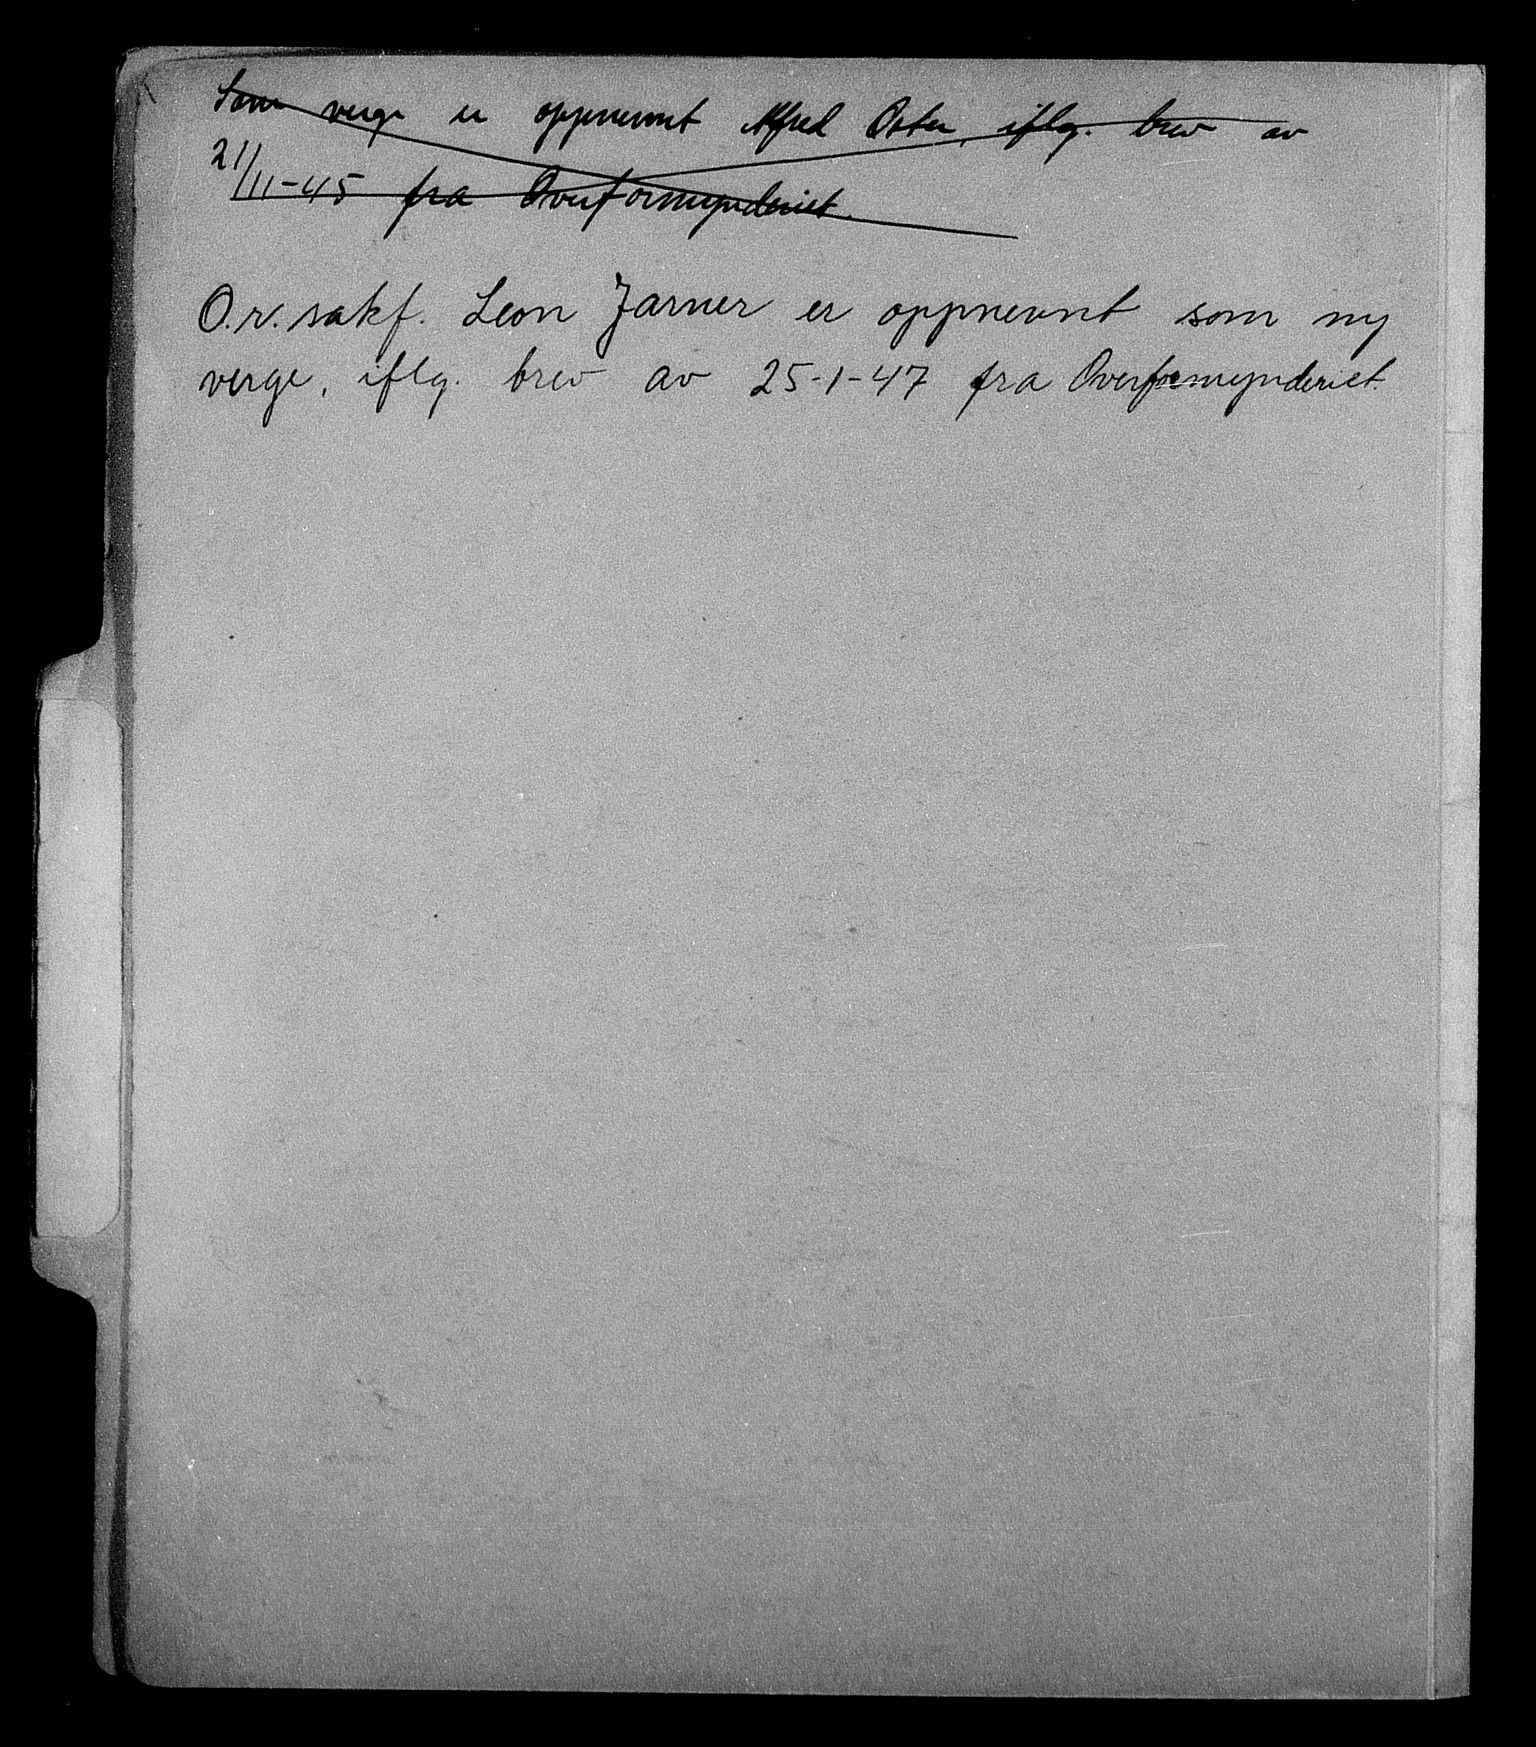 Som verge er oppnevnt Alfred Oster, iflg. brev av
21/11-45 fra Overformynderiet.
O.r.sakf. Leon Jarner er oppnevnt som ny
verge, iflg. brev av 25-1-47 fra Overformynderiet.